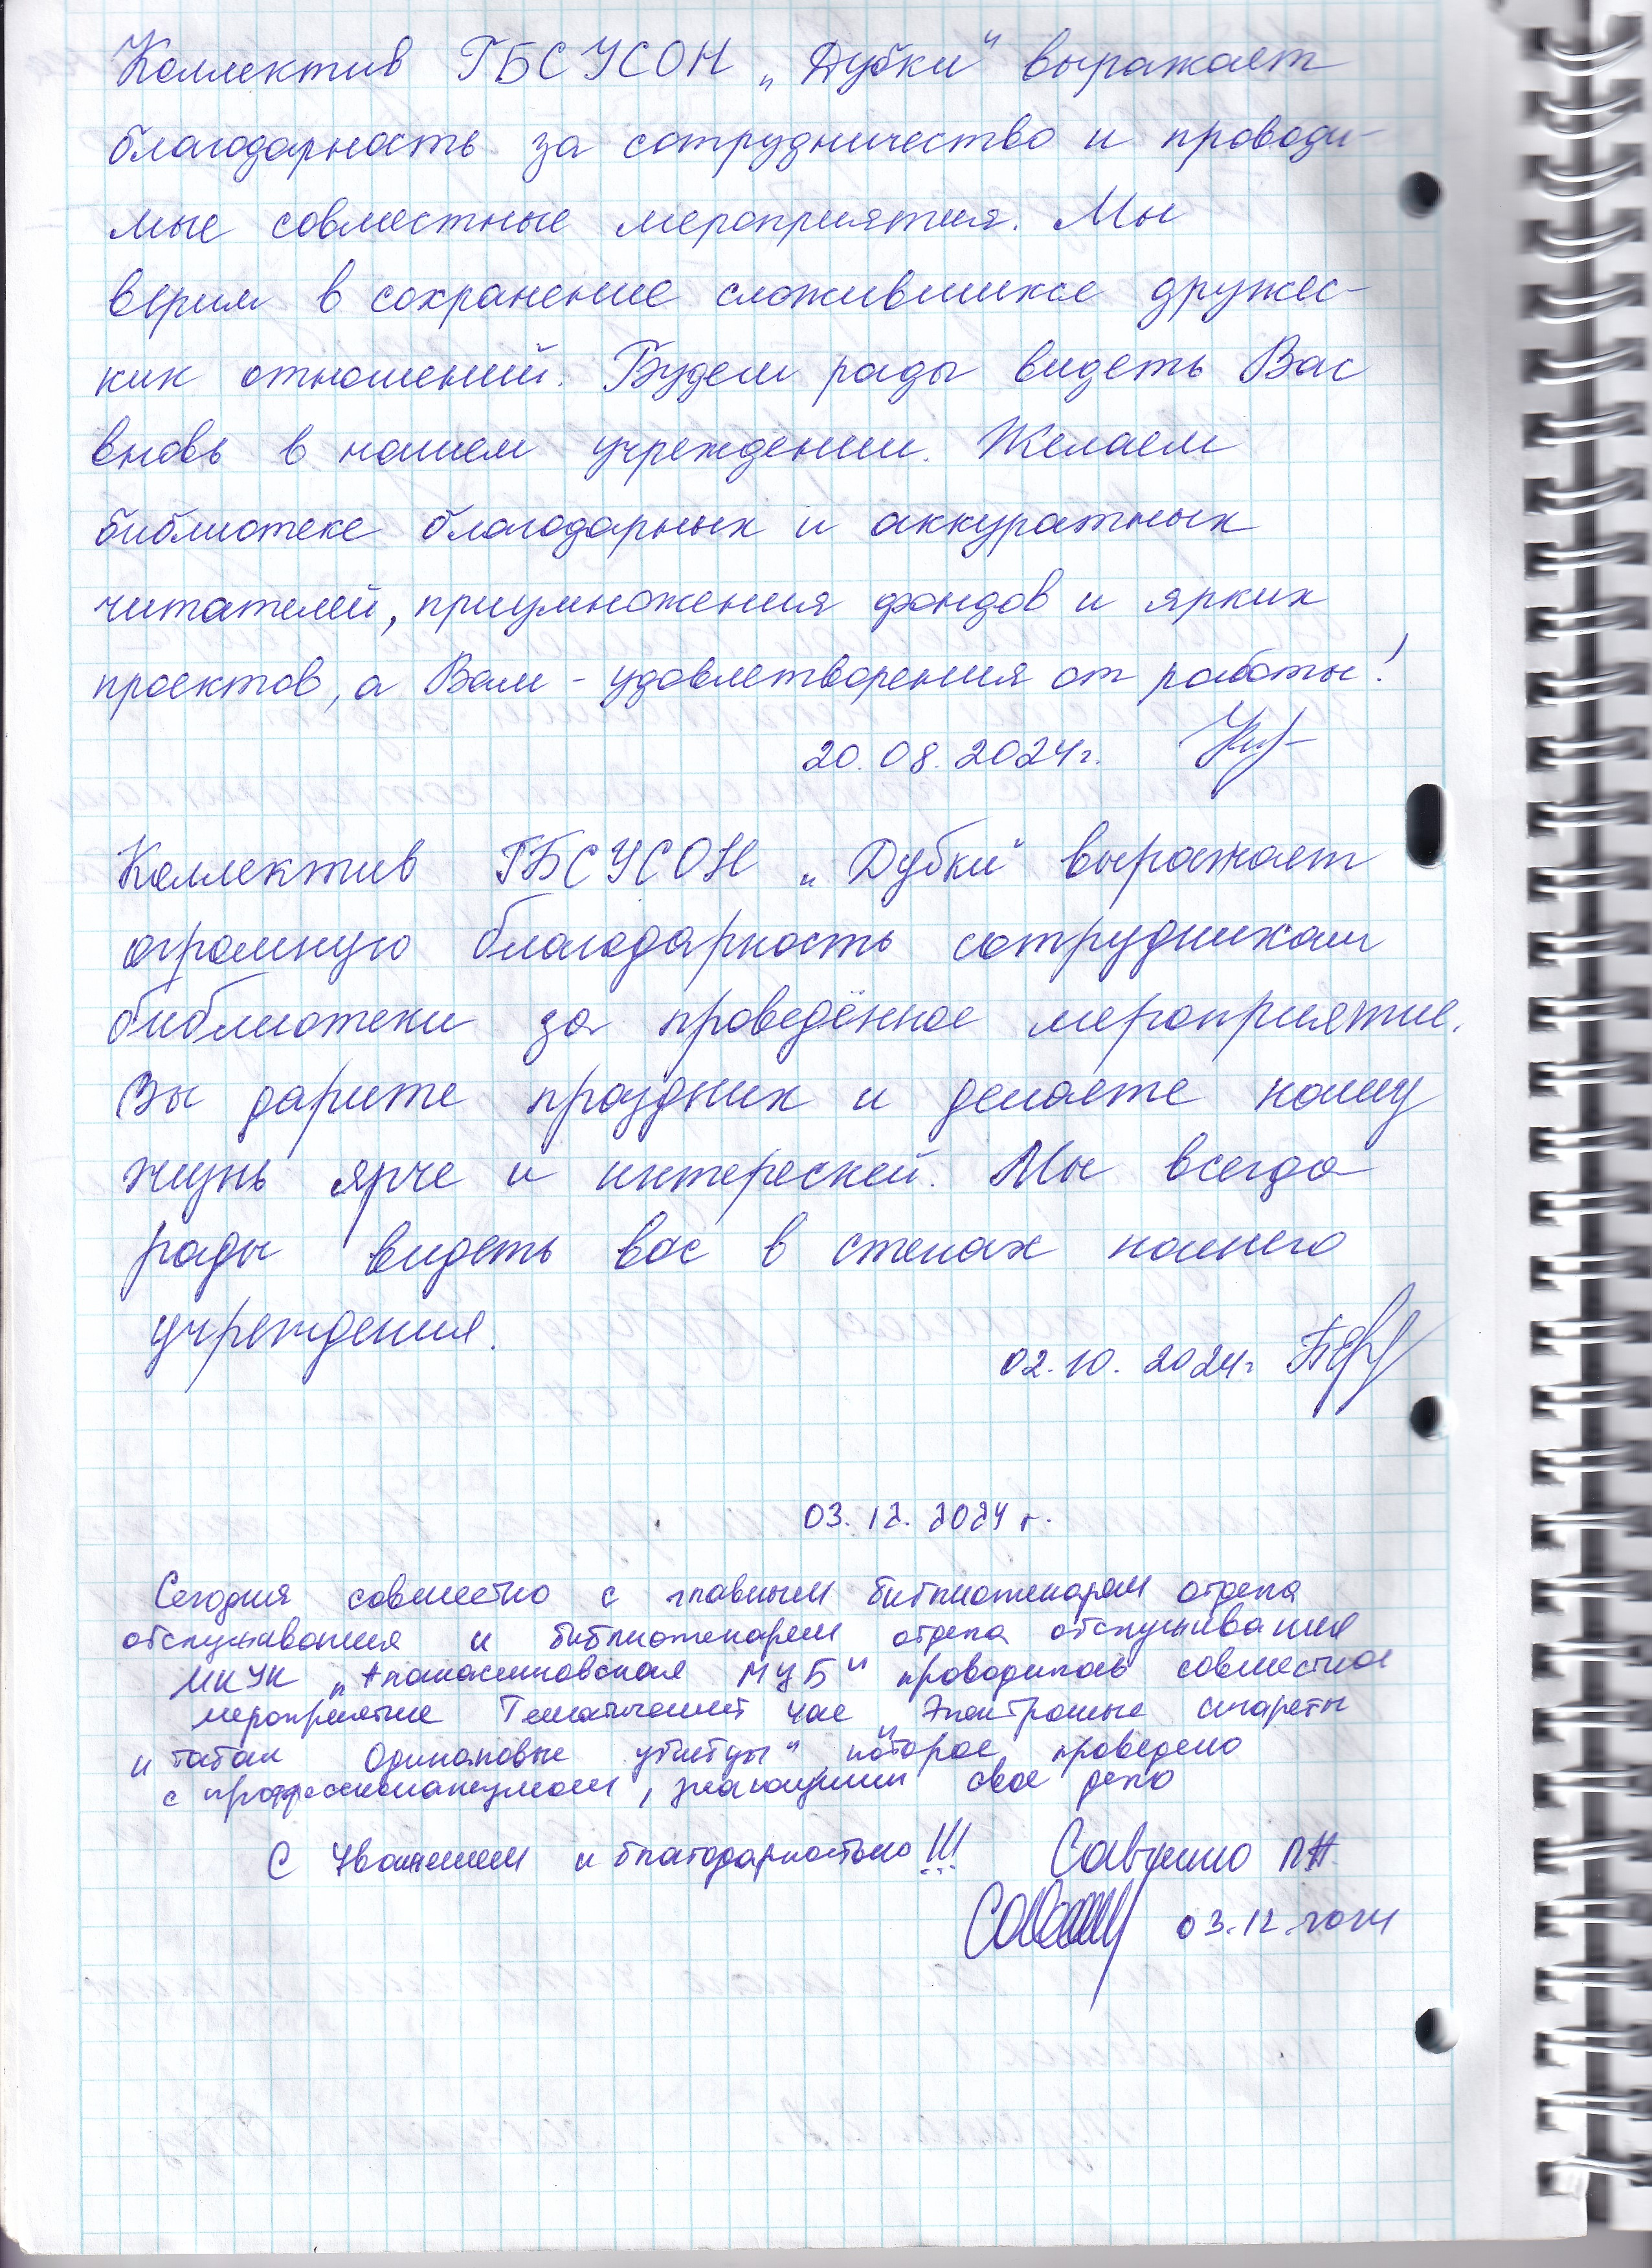 Коллектив ГБСУСОН „Дубки" выражает
благодарность за сотрудничество и проводи-
мые совместные мероприятия. Мы
верим в сохранение сложившихся дружес-
ких отношений. Будем рады видеть Вас
вновь в нашем учреждении. Желаем
библиотеке благодарных и аккуратных
читателей, приумножения фондов и ярких
проектов, а Вам - удовлетворения от работы!
20.08.2024г.
Коллектив ГБСУСОН „Дубки" выражает
огромную благодарность сотрудникам
библиотеки за проведённое мероприятие.
Вы дарите праздник и делаете нашу
жизнь ярче и интересней. Мы всегда
рады видеть вас в стенах нашего
учреждения.
02.10.2024г.
03.12.2024 г.
Сегодня совместно с главным библиотекарем отдела
обслуживания и библиотекарем отдела обслуживания
МКУК „Апанасенковская МЦБ" проводилось совместное
мероприятие Тематический час „Электронные сигареты
и табак Одинаковые убийцы" которое проведено
с профессионализмом, знающими свое дело
С Уважением и благодарностью!!!
03.12.2024